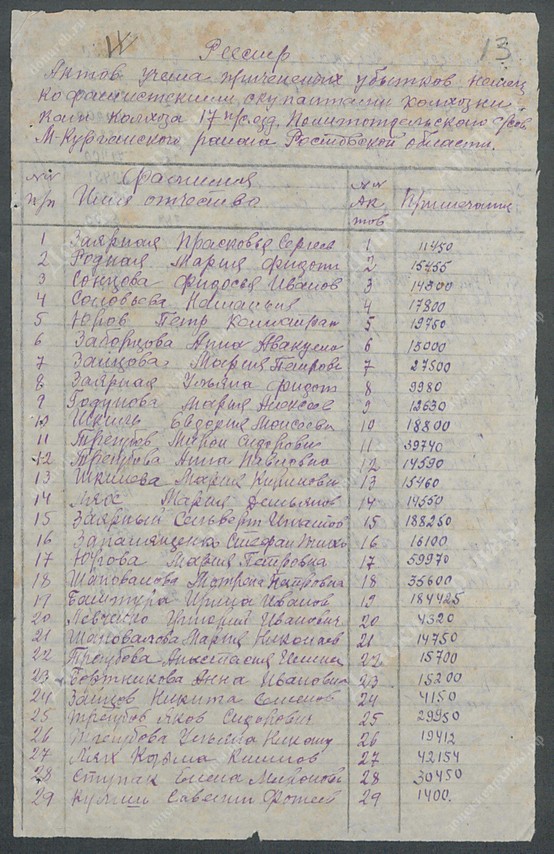 13
Реестр
Актов учета причененных убытков немец
ко фашистскими оккупантами колхозни
кам колхоза 17 п/съезд. Политотдельского с/сов.
М-Курганского района Ростовской области.
№№ п/п Фамилия Имя отчества №№ Ак тов Примечания
1 Заярная Прасковья Сергеев 1 11450
2 Родная Мария Федот 2 15455
3 Сонцова Федосья Иванов 3 14800
4 Соловьева Наталья 4 17800
5 Юров Петр 5 19750
6 Анна Авакумо 6 15000
7 Зайцова Мария Петровн 7 27500
8 Заярная Ульяна Федот 8 9980
9 Годунова Мария Алексеев 9 12630
10 Шкиль Евдокия Моисеевн 10 18800
11 Трегубов Сидорович 11 39740
12 Трегубова Анна Павловна 12 14590
13 Мария 13 15460
14 Лях Мария Демьянов 14 14550
15 Заярный 15 188250
16 Стефан 16 16100
17 Югова Мария Петровна 17 59970
18 Шаповалова Матрена Петровна 18 35600
19 Ирина Иванов 19 184425
20 Левченко Григорий Иванович 20 4320
21 Шаповалова Мария Николаев 21 14750
22 Трегубова Анастасия 22 15700
23 Бортникова Анна Ивановна 23 15200
24 Зайцов Никита Семенов 24 4150
25 Трегубов Яков Сидорович 25 29950
26 Трегубова Ульяна 26 19412
27 Лях Козьма 27 42154
28 Ступак Елена 28 30450
29 Савелий Фотеев 29 1400.